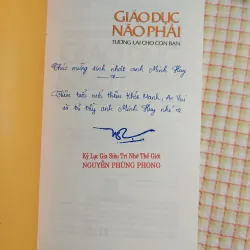 GIÁO DỤC
NÃO PHẢI
TƯƠNG LAI CHO CON BẠN
Chúc mừng sinh nhật anh Minh Huy
Thêm tuổi mới thêm Khỏe Mạnh, An Vui
và trẻ anh Minh Huy nhé
Kỷ Lục Gia Siêu Trí Nhớ Thế Giới
NGUYỄN PHÙNG PHONG